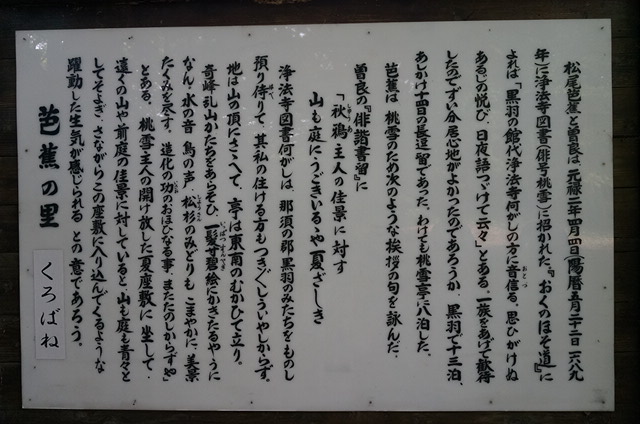 松尾芭蕉と曽良は、元禄二年四月四日(陽暦五月二十二日、一六八九
年)に浄法寺図書(俳号桃雪)に招かれた。『おくのほそ道』に
よれば「黒羽の館代浄法寺何がしの方に音信る。思ひがけぬ
あるじの悦び、日夜語つゞけて云々」とある。一族をあげて歓待
したのでずい分居心地がよかったのであろうか、黒羽で十三泊、
あしかけ十四日の長逗留であった。わけても桃雪亭に八泊した。
芭蕉は、桃雪のため次のような挨拶の句を詠んだ。
曽良の『俳諧書留』に
「秋鴉主人の佳景に対す
山も庭にうごきいるゝや夏ざしき
浄法寺図書何がしは、那須の郡黒羽のみたちをものし
預り侍りて、其私の住ける方もつきづきしういやしからず。
地は山の頂にさゝへて、亭は東南のむかひて立り。
奇峰乱山かたちをあらそひ、一髪寸碧絵にかきたるやうに
なん。水の音、鳥の声、松杉のみどりもこまやかに、美景
たくみを尽す。造化の功のおほひなる事、またたのしからずや」
とある。桃雪主人の開け放した夏座敷に坐して、
遠くの山や前庭の佳景に対していると、山も庭も青々と
してそよぎ、さながらこの座敷に入り込んでくるような
躍動した生気が感じられる との意であろう。
芭蕉の里
くろばね